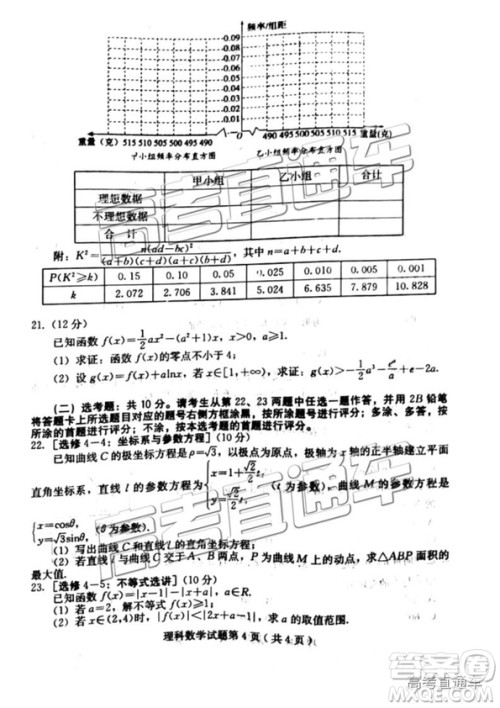 频率/组距
0.09
0.08
0.07
0.06
0.05
0.04
0.03
0.02
0.01
重量(克) 515 510 505 500 495 490 O 490 495 500 505 510 515 重量(克)
甲小组频率分布直方图 乙小组频率分布直方图
甲小组 乙小组 合计
理想数据
不理想数据
合 计
附：K²=n(ad-bc)²/(a+b)(c+d)(a+c)(b+d)，其中 n=a+b+c+d.
P(K²≥k) 0.15 0.10 0.05 0.025 0.010 0.005 0.001
k 2.072 2.706 3.841 5.024 6.635 7.879 10.828
21. (12 分)
已知函数 f(x)=1/2 ax²-(a²+1)x, x>0, a≥1.
(1) 求证：函数 f(x)的零点不小于 4；
(2) 设 g(x)=f(x)+alnx，若 g(x)有两个极值点，求证：g(x)>-1/2 a³-eᵃ/a+e-2a.
(二) 选考题：共 10 分。请考生从第 22、23 两题中任选一题作答，并用 2B 铅笔
将答题卡上所选题目对应的题号右侧方框涂黑，按所涂题号进行评分；多涂、多答，
按所涂的首题进行评分；不涂，按本选考题的首题进行评分。
22. [选修 4-4：坐标系与参数方程] (10 分)
已知曲线 C 的极坐标方程是 ρ=√3，以极点为原点，极轴为 x 轴的正半轴建立平面
直角坐标系，直线 l 的参数方程为 {x=1+√2/2 t, (t 为参数)，曲线 M 的参数方程为
{x=cosθ,
y=√3sinθ (θ 为参数).
(1) 写出曲线 C 和直线 l 的直角坐标方程；
(2) 已知直线与曲线 C 交于 A,B 两点，P 为曲线 M 上的动点，求△ABP 面积的
最大值.
23. [选修 4-5：不等式选讲] (10 分)
已知函数 f(x)=|x-1|-|x-a|.
(1) 若 a=2，解不等式
(2) 若 x∈(2,4)时，
求 a 的取值范围.
理科数学试题第 4 页(共 4 页)
高考直通车
高考直通车
答案圈
MXQE.COM
高考直通车